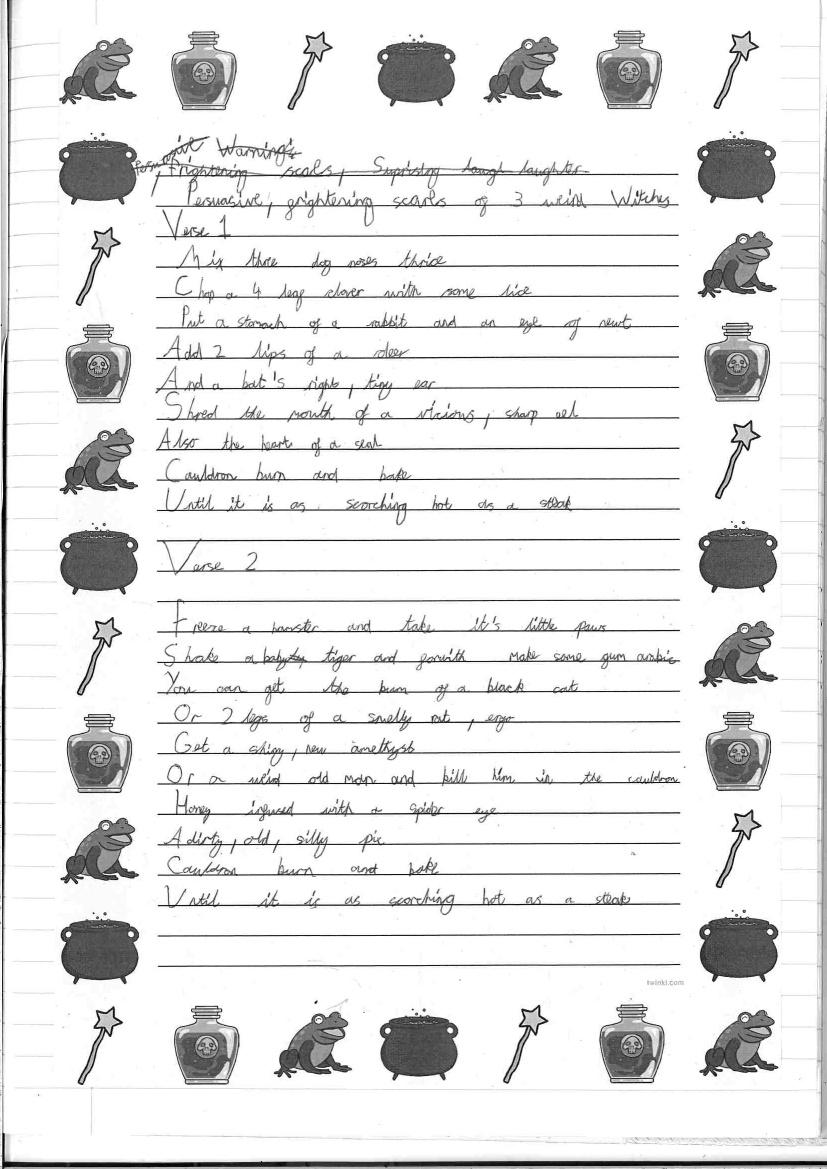 evil Warning's
Frightening scarls, Suprising laugh laughter
Persuasive, grightening scarls of 3 weird Witches
Verse 1
Mix three dog noses thrice
Chop a 4 leaf clover with some lice
Put a stomach of a rabbit and an eye of newt
Add 2 lips of a deer
And a bat's right, tiny ear
Shred the mouth of a vicious, sharp eel
Also the heart of a seal
Cauldron burn and bake
Until it is as scorching hot as a steak
Verse 2
Freeze a hamster and take it's little paws
Shake a baby tiger and forwith make some gum arabic
You can get the bum of a black cat
Or 2 legs of a smelly rat, ergo
Get a shiny, new amethyst
Or a weird old man and kill him in the cauldron
Honey infused with a spider eye
A dirty, old, silly pie
Cauldron burn and bake
Until it is as scorching hot as a steak
twinkl.com